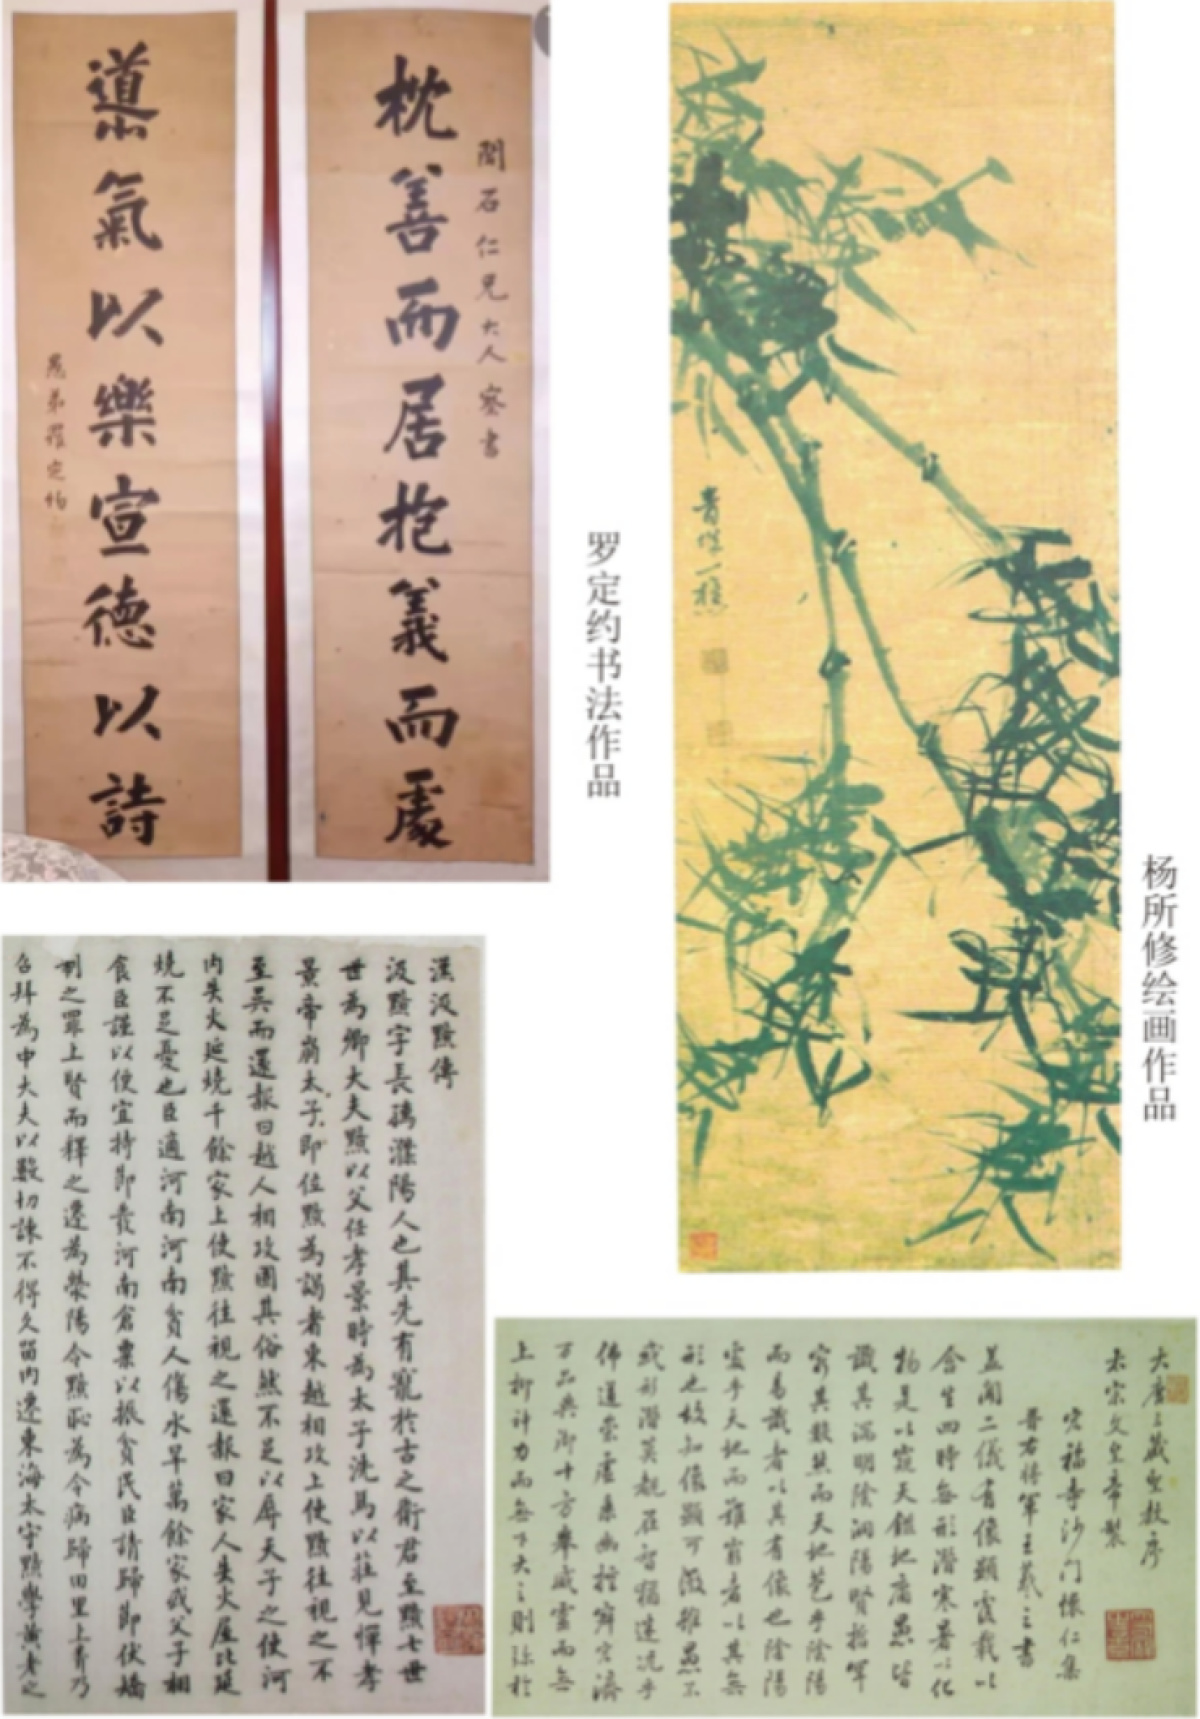 枕善而居抱義而處
閬石仁兄大人察書
道氣以樂宣德以詩
愚弟羅定約
罗定约书法作品
青溪一樵
杨所修绘画作品
漢汲黯傳
汲黯字長孺濮陽人也其先有寵於古之衛君至黯七世
世為卿大夫黯以父任孝景時為太子洗馬以莊見憚孝
景帝崩太子即位黯為謁者東越相攻上使黯往視之不
至吳而還報曰越人相攻固其俗然不足以辱天子之使河
內失火延燒千餘家上使黯往視之還報曰家人失火屋比延
燒不足憂也臣適河南河南貧人傷水旱萬餘家或父子相
食臣謹以便宜持節發河南倉粟以振貧民臣請歸節伏矯
制之罪上賢而釋之遷為滎陽令黯恥為令病歸田里上聞乃
召拜為中大夫以數切諫不得久留內遷東海太守黯學黃老之
大唐三藏聖教序
太宗文皇帝製
弘福寺沙門懷仁集
晉右將軍王羲之書
蓋聞二儀有像顯覆載以
含生四時無形潛寒暑以化
物是以窺天鑑地庸愚皆
識其端明陰洞陽賢哲罕
窮其數然而天地苞乎陰陽
而易識者以其有像也陰陽
處乎天地而難窮者以其無
形也故知像顯可徵雖愚不
惑形潛莫覩在智猶迷況乎
佛道崇虛乘幽控寂弘濟
萬品典御十方舉威靈而無
上抑神力而無下大之則彌於